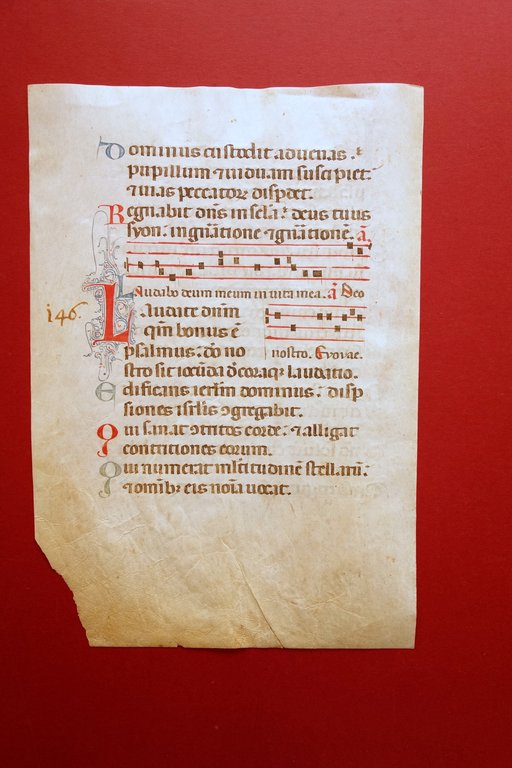 Dominus custodit aduenas. ⁊
pupillum ⁊ uiduam suscipiet:
⁊ uias peccatoꝝ dispdet.
Regnabit dn̄s in sc̄la: deus tuus
syon. in gn̄atione ⁊ gn̄ationē. a
Laudabo deum meum in uita mea. a Deo
146.
Laudate dn̄m
qm̄ bonus ē
psalmus: do no nostro. Euouae.
stro sit iocūda decoraqꝫ laudatio.
Edificans ierlm̄ dominus: disp
siones isrlis ꝯgregabit.
Qui sanat ꝯtritos corde: ⁊ alligat
contritiones eorum.
Qui numerat ml̄titudinē stellarū:
⁊ omibꝫ eis noīa uocat.